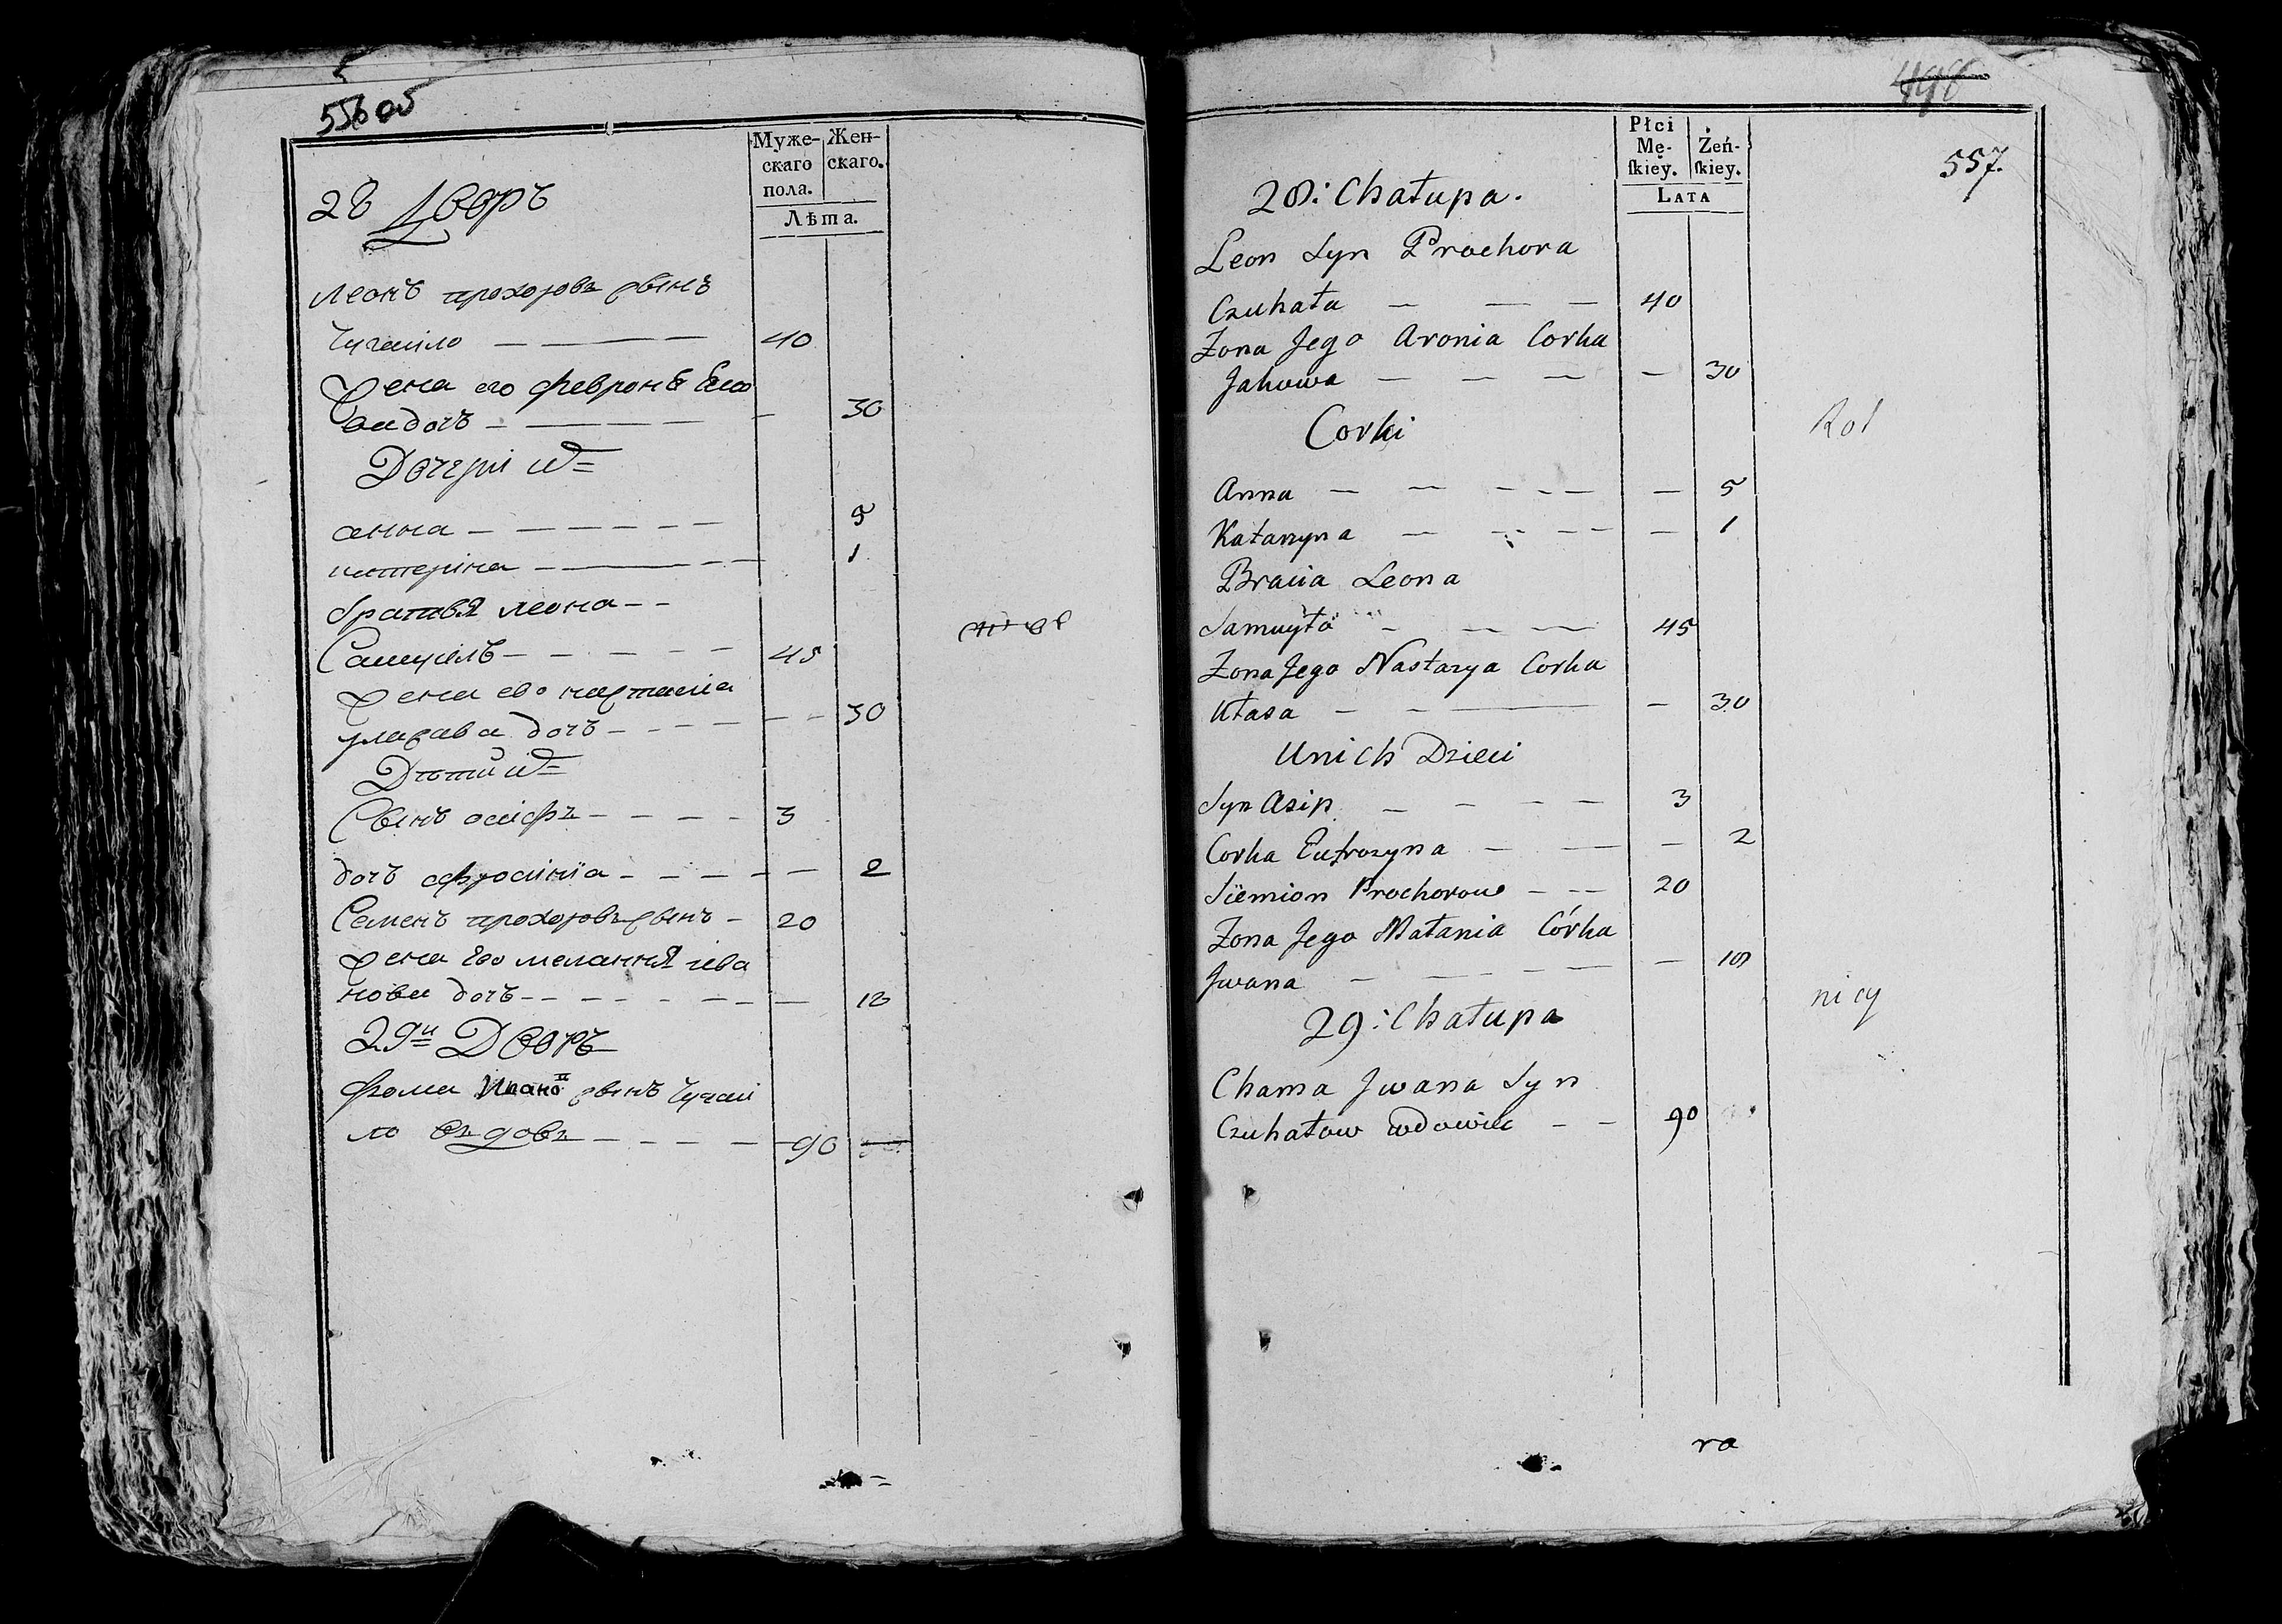 556 об
Муже-
скаго
пола.
Жен-
скаго.
Лѣта.
28 Дворъ
Леонъ прохоровъ сынъ
Чугаило — — — 40
Жена его февронѣ
ва дочъ — — — — 30
Дочери и=
анна — — — — — — 5
катеріна — — — — 1
братья леона — —
Самуйлъ — — — — — 45
Жена его настасіа
уласава дочъ — — — — — 30
Дѣти и=
Сынъ осіфъ — — — — 3
дочъ офросинїа — — — — — 2
Семенъ прохоровъ сынъ — 20
Жена Его меланнЯ ива
нова дочъ — — — — — — — 18
29й Дворъ
фома Ивано сынъ Чугаи
ло въдовъ — — — — 90
498
557.
Płci
Mę-
ſkiey.
Żeń-
ſkiey.
Lata
28: Chałupa.
Leon Syn Prochora
Czuhała — — — 40
Zona Jego Aronia Corka
Jakowa — — — — 30
Corki
Anna — — — — — — 5
Katarzyna — — — — — 1
Bracia Leona
Samuyło — — — 45
Zona Jego Nastazya Corka
Ułasa — — — — 30
U nich Dzieci
Syn Asip — — — — 3
Corka Eufrozyna — — — 2
Siemion Prochorow — — 20
Zona Jego Małania Córka
Jwana — — — — — 18
29: Chałupa
Choma Jwana Syn
Czuhałow wdowiec — — 90
nicy
ra